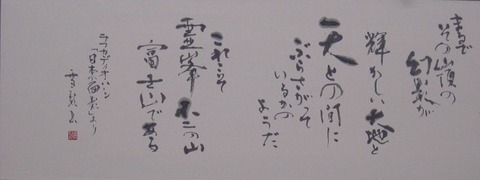 まるで
その山頂の
幻影が
輝かしい大地と
天との間に
ぶらさがって
いるかの
ようだ
これこそ
霊峯不二の山
富士山である
ラフカディオ・ハーン
「日本の面影」より